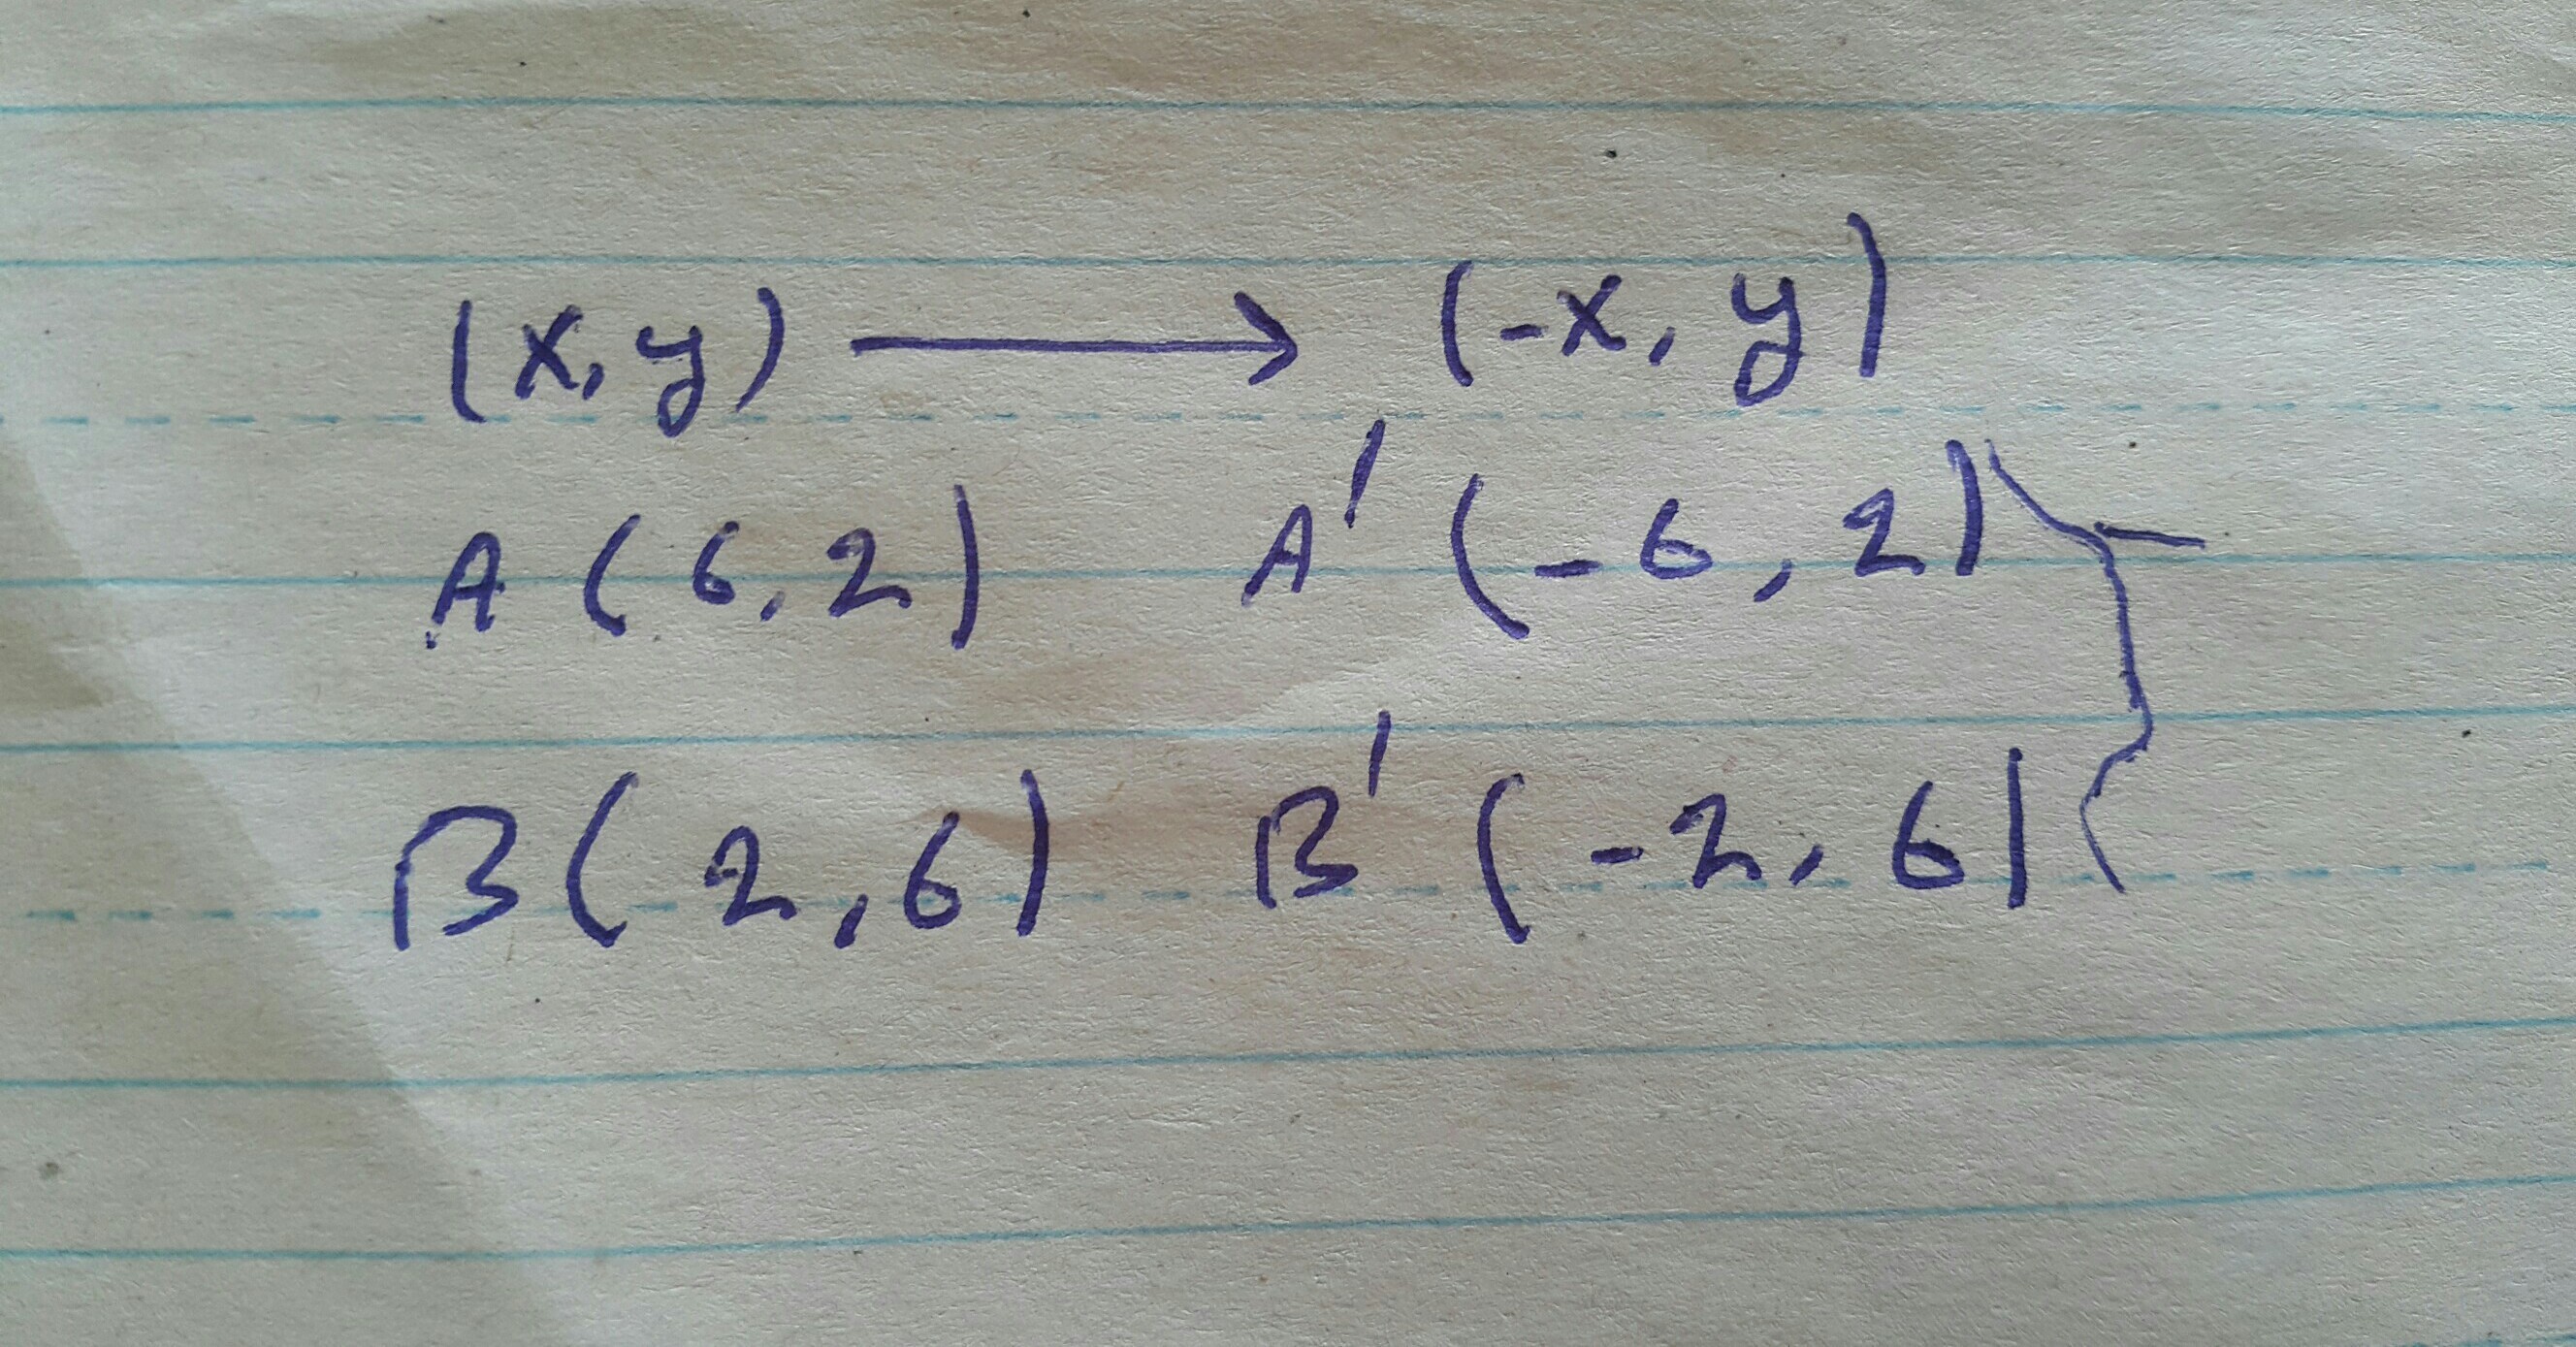 (x, y) → (-x, y)
A (6, 2) A' (-6, 2)
B (2, 6) B' (-2, 6)